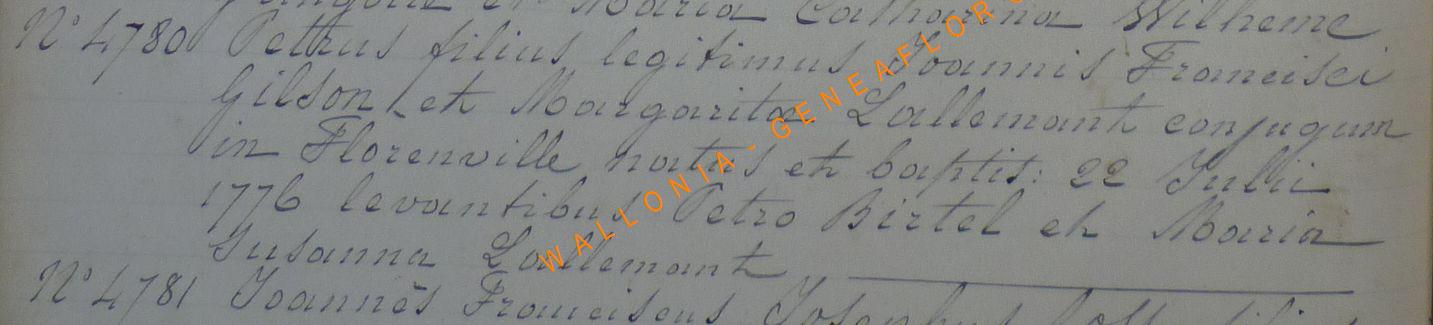 et Maria Catharina Wilheme
N° 4780 Petrus filius legitimus Joannis Francisci
Gilson et Margarita Lallemant conjugum
in Florenville natus et baptis: 22 Julii
1776 levantibus Petro Birtel et Maria
Susanna Lallemant
N° 4781 Joannès Franciscus Josephus
WALLONIA - GENEAFLOR